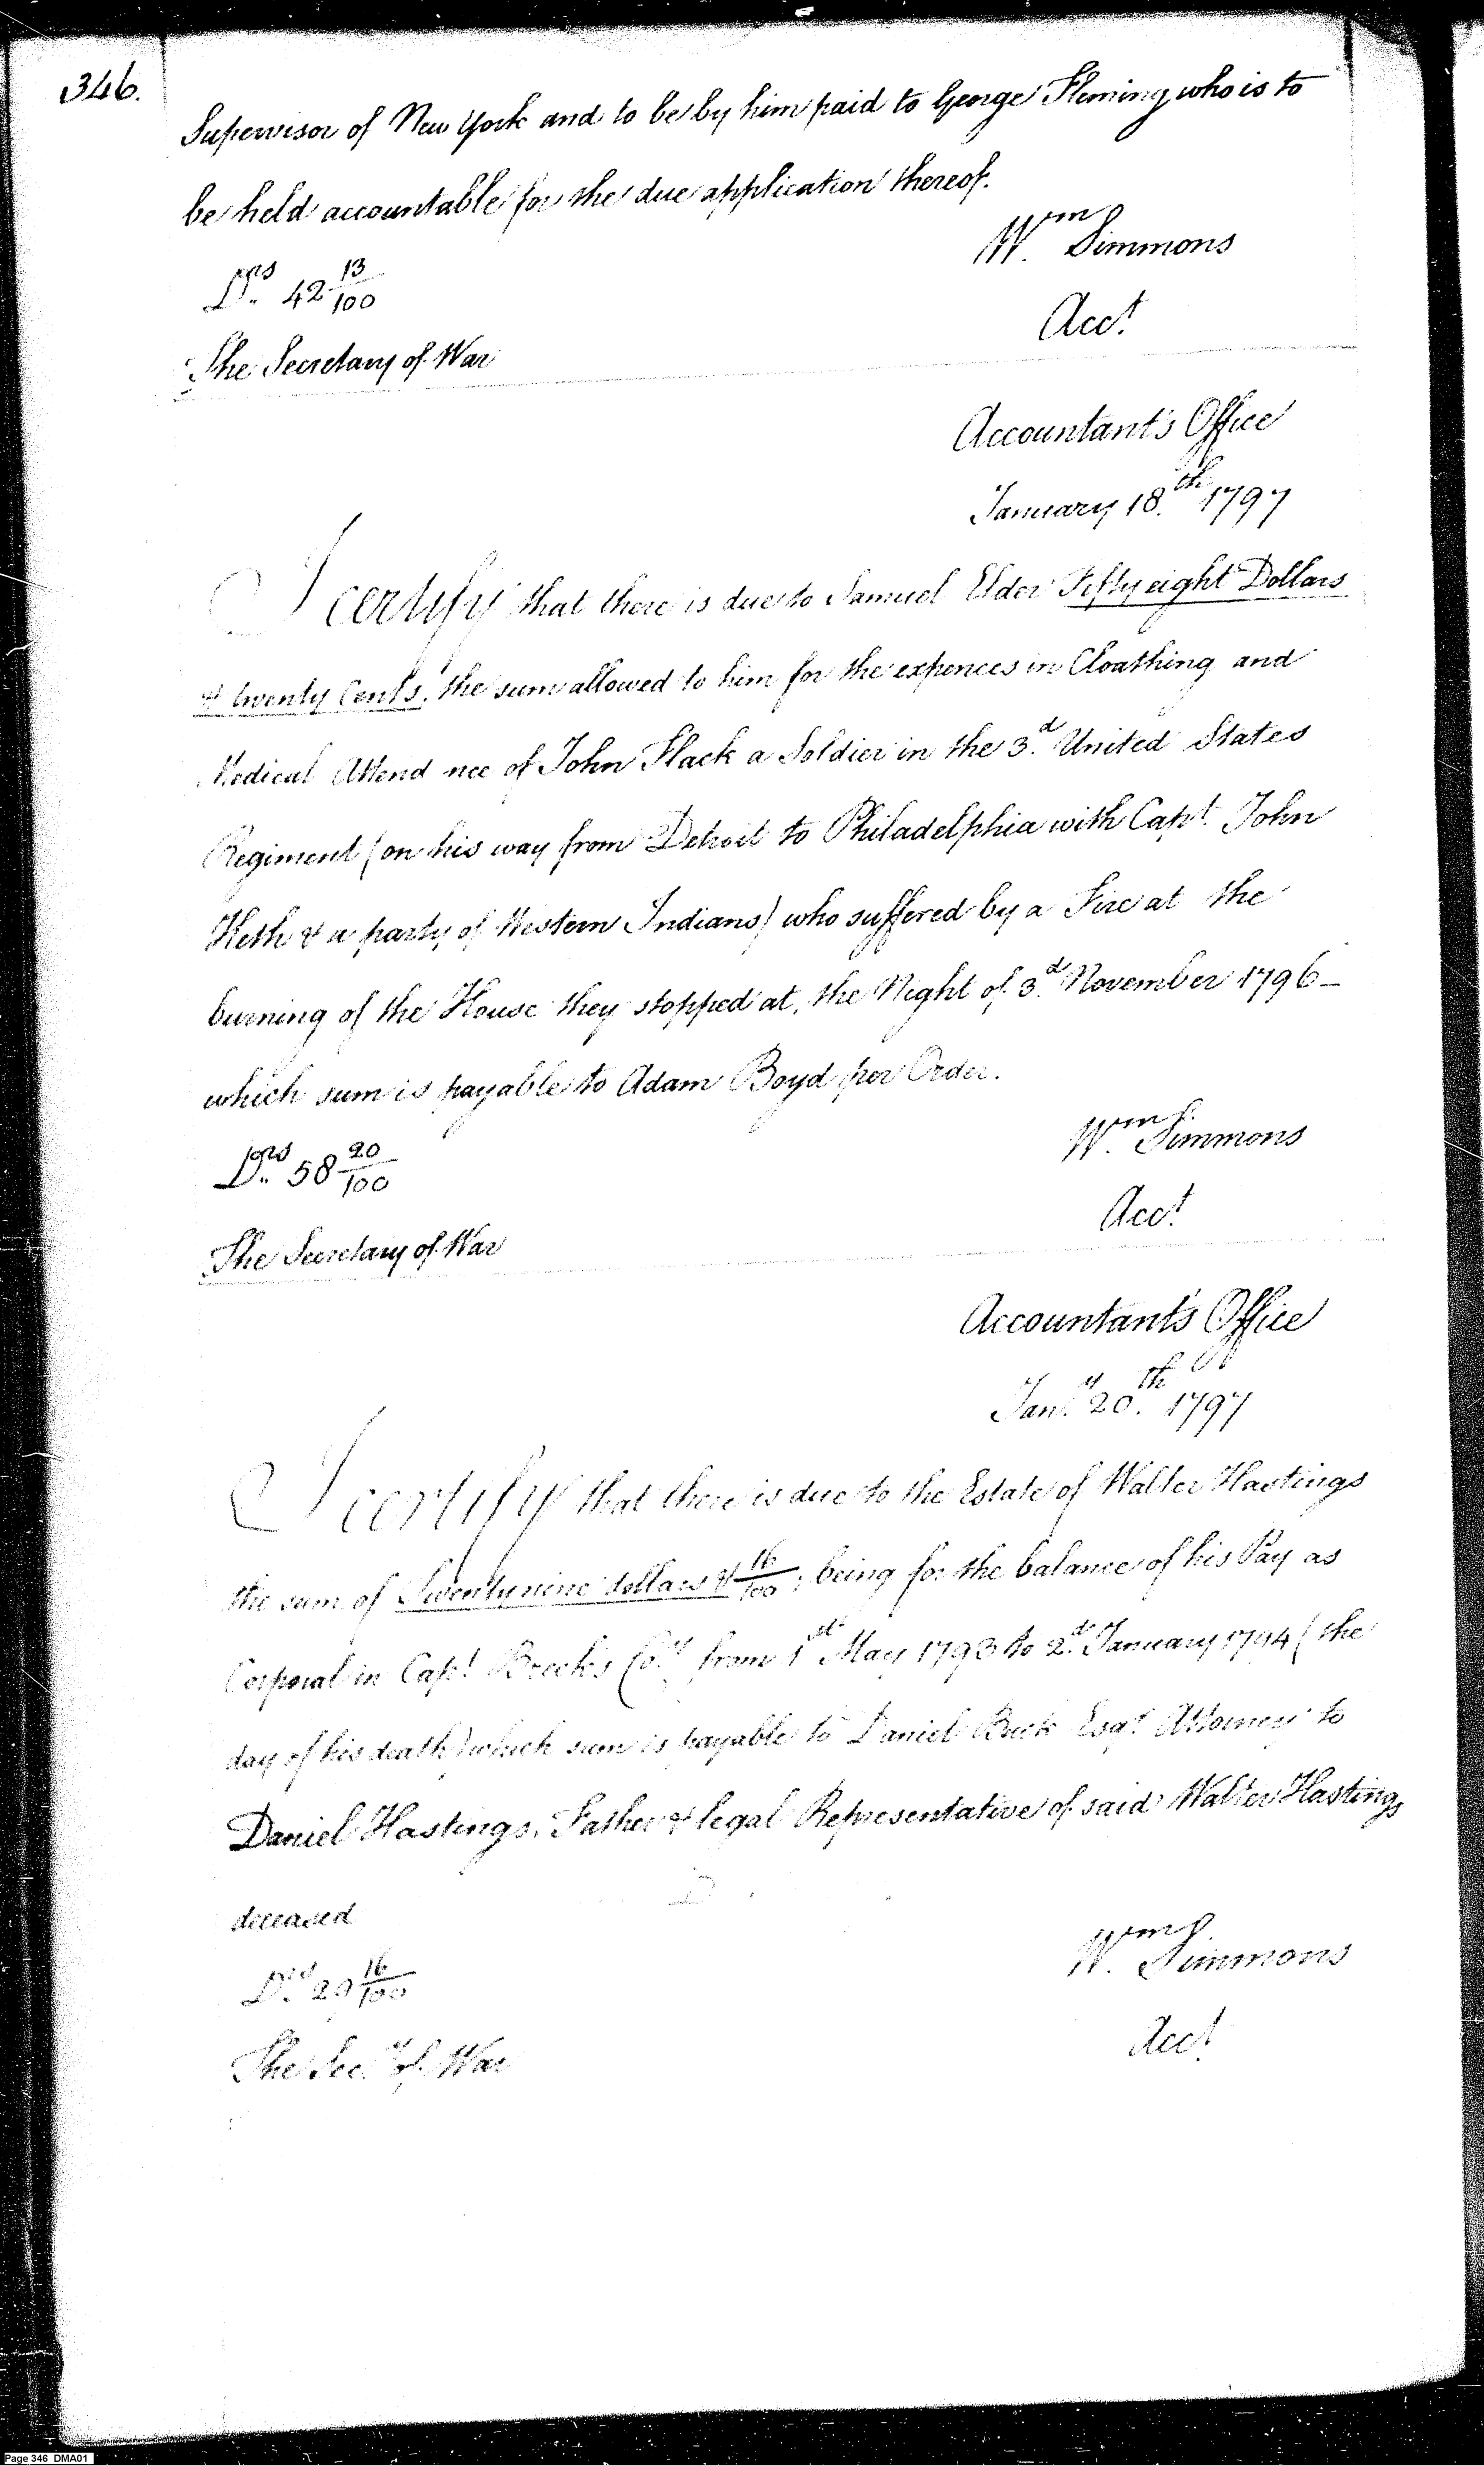 346.
Supervisor of New York and to be by him paid to George Fleming who is to
be held accountable for the due application thereof.
Wm Simmons
Drs 42 13/100
Acct
The Secretary of War
Accountant's Office
January 18th 1797
I certify that there is due to Samuel Elder Fifty eight Dollars
& twenty Cents, the sum allowed to him for the expences in Cloathing and
Medical Attend nce of John Flack a Soldier in the 3d United States
Regiment (on his way from Detroit to Philadelphia with Capt. John
Heth & a party of Western Indians) who suffered by a Fire at the
burning of the House they stopped at, the Night of 3d November 1796 –
which sum is payable to Adam Boyd per Order.
Wm Simmons
Drs 58 20/100
Acct
The Secretary of War
Accountant's Office
Jany 20th 1797
I certify that there is due to the Estate of Walter Hastings
the sum of Twenty nine dollars & 16/100; being for the balance of his Pay as
Corporal in Capt Brock's Coy from 1st May 1793 to 2d January 1794 (the
day of his death) which sum is payable to Daniel Buck Esqr Attorney to
Daniel Hastings, Father & legal Representative of said Walter Hastings
deceased
Wm Simmons
Drs 29 16/100
Acct
The Secy of War
Page 346 DMA01